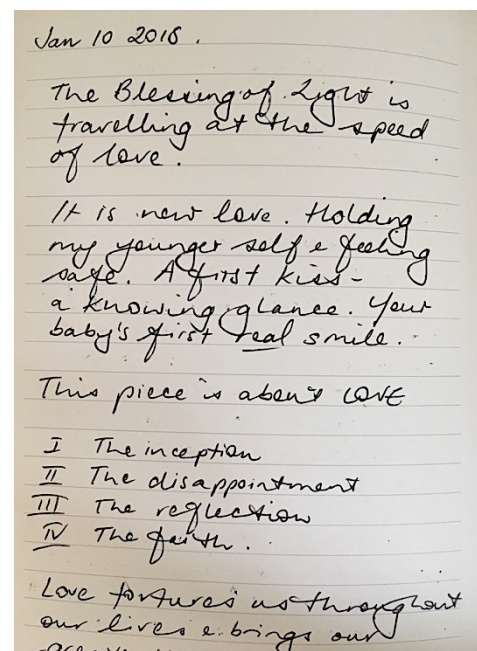 Jan 10 2018.
The Blessing of Light is
travelling at the speed
of love.
It is new love. Holding
my younger self & feeling
safe. A first kiss -
a knowing glance. Your
baby's first real smile.
This piece is about LOVE
I The inception
II The disappointment
III The reflection
IV The faith.
Love tortures us throughout
our lives & brings our